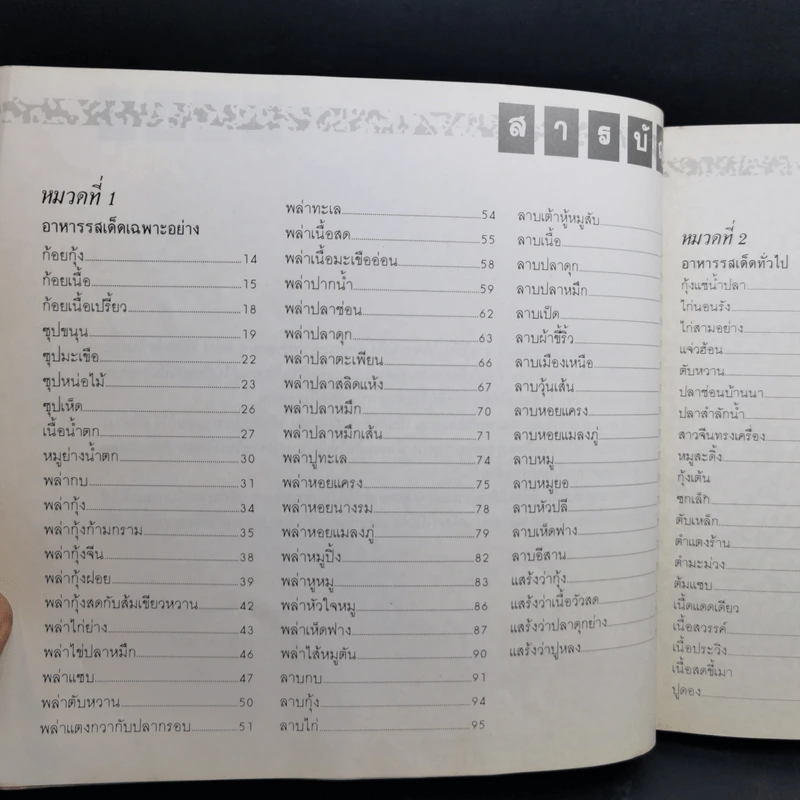 สารบั
หมวดที่ 1
อาหารรสเด็ดเฉพาะอย่าง
ก้อยกุ้ง 14
ก้อยเนื้อ 15
ก้อยเนื้อเปรี้ยว 18
ซุปขนุน 19
ซุปมะเขือ 22
ซุปหน่อไม้ 23
ซุปเห็ด 26
เนื้อน้ำตก 27
หมูย่างน้ำตก 30
พล่ากบ 31
พล่ากุ้ง 34
พล่ากุ้งก้ามกราม 35
พล่ากุ้งจีน 38
พล่ากุ้งฝอย 39
พล่ากุ้งสดกับส้มเขียวหวาน 42
พล่าไก่ย่าง 43
พล่าไข่ปลาหมึก 46
พล่าแซบ 47
พล่าตับหวาน 50
พล่าแตงกวากับปลากรอบ 51
พล่าทะเล 54
พล่าเนื้อสด 55
พล่าเนื้อมะเขืออ่อน 58
พล่าปากน้ำ 59
พล่าปลาช่อน 62
พล่าปลาดุก 63
พล่าปลาตะเพียน 66
พล่าปลาสลิดแห้ง 67
พล่าปลาหมึก 70
พล่าปลาหมึกเส้น 71
พล่าปูทะเล 74
พล่าหอยแครง 75
พล่าหอยนางรม 78
พล่าหอยแมลงภู่ 79
พล่าหมูปิ้ง 82
พล่าหูหมู 83
พล่าหัวใจหมู 86
พล่าเห็ดฟาง 87
พล่าไส้หมูตัน 90
ลาบกบ 91
ลาบกุ้ง 94
ลาบไก่ 95
ลาบเต้าหู้หมูสับ
ลาบเนื้อ
ลาบปลาดุก
ลาบปลาหมึก
ลาบเป็ด
ลาบผ้าขี้ริ้ว
ลาบเมืองเหนือ
ลาบวุ้นเส้น
ลาบหอยแครง
ลาบหอยแมลงภู่
ลาบหมู
ลาบหมูยอ
ลาบหัวปลี
ลาบเห็ดฟาง
ลาบอีสาน
แสร้งว่ากุ้ง
แสร้งว่าเนื้อวัวสด
แสร้งว่าปลาดุกย่าง
แสร้งว่าปูหลง
หมวดที่ 2
อาหารรสเด็ดทั่วไป
กุ้งแช่น้ำปลา
ไก่นอนรัง
ไก่สามอย่าง
แจ่วฮ้อน
ตับหวาน
ปลาช่อนบ้านนา
ปลาสำลักน้ำ
สาวจีนทรงเครื่อง
หมูสะดิ้ง
กุ้งเต้น
ซกเล็ก
ตับเหล็ก
ตำแตงร้าน
ตำมะม่วง
ต้มแซบ
เนื้อแดดเดียว
เนื้อสวรรค์
เนื้อประวิง
เนื้อสดขี้เมา
ปูดอง